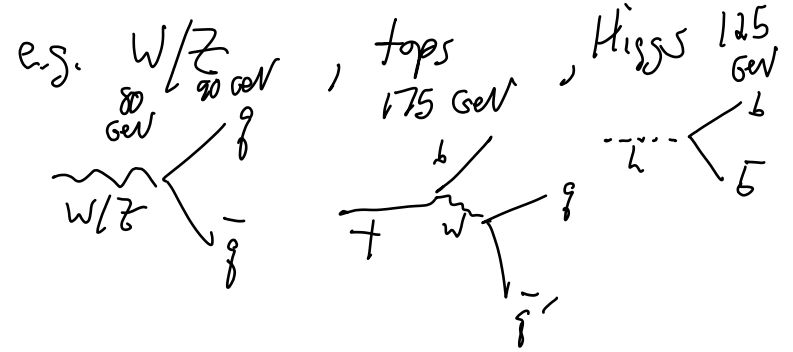 e.g. W/Z , tops , Higgs 125 GeV
80 GeV 90 GeV 175 GeV
q b b
W/Z t W q h b̄
q̄ q̄′